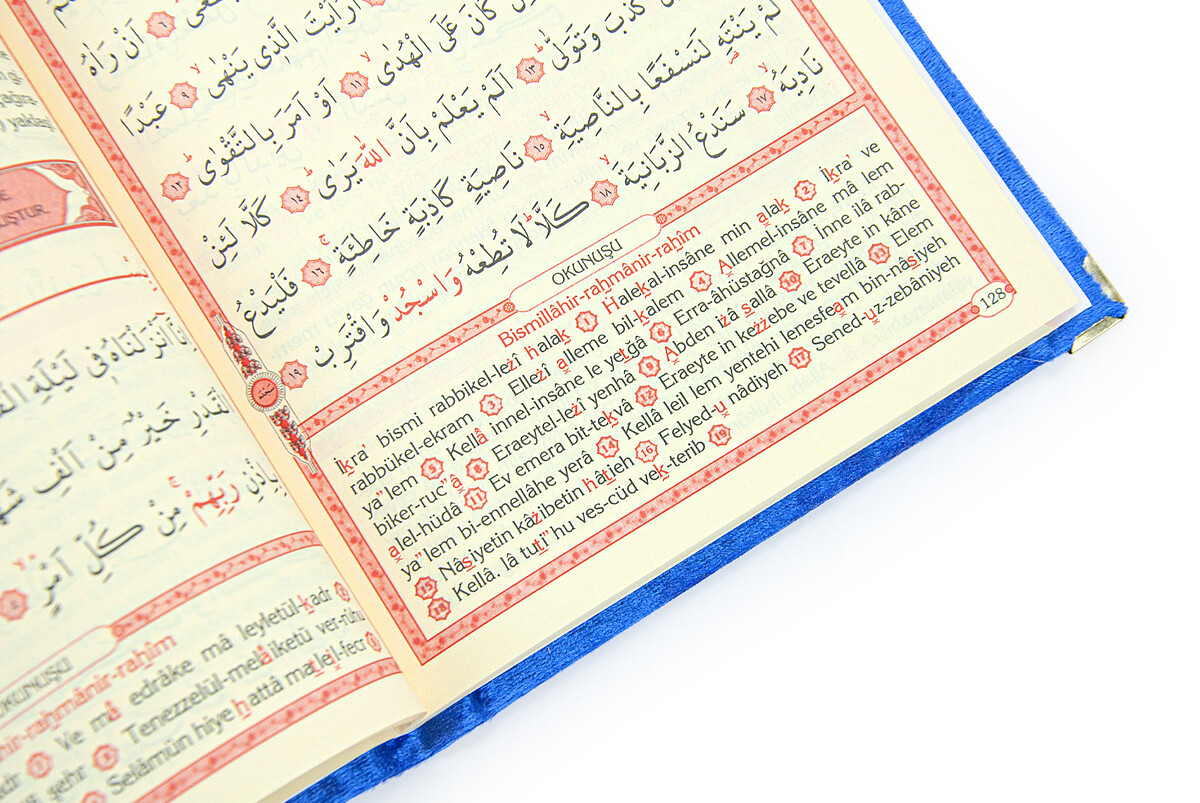 اَنْ رَاٰهُ
اَرَاَيْتَ الَّذ۪ي يَنْهٰىۙ ﴿٩﴾ عَبْدًا
كَانَ عَلَى الْهُدٰىۙ ﴿١١﴾ اَوْ اَمَرَ بِالتَّقْوٰىۜ ﴿١٢﴾
كَذَّبَ وَتَوَلّٰىۜ ﴿١٣﴾ اَلَمْ يَعْلَمْ بِاَنَّ اللّٰهَ يَرٰىۜ ﴿١٤﴾ كَلَّا لَئِنْ
لَمْ يَنْتَهِ لَنَسْفَعًا بِالنَّاصِيَةِۙ ﴿١٥﴾ نَاصِيَةٍ كَاذِبَةٍ خَاطِئَةٍۚ ﴿١٦﴾ فَلْيَدْعُ
نَادِيَهُۙ ﴿١٧﴾ سَنَدْعُ الزَّبَانِيَةَۙ ﴿١٨﴾ كَلَّاۜ لَا تُطِعْهُ وَاسْجُدْ وَاقْتَرِبْ ﴿١٩﴾
OKUNUŞU
Bismillâhir-rahmânir-rahîm
İkra' bismi rabbikel-lezî halak 1 Halekal-insâne min alak 2 İkra' ve
rabbükel-ekram 3 Ellezî alleme bil-kalem 4 Allemel-insâne mâ lem
ya"lem 5 Kellâ innel-insâne le yetgâ 6 Erra-âhüstağnâ 7 İnne ilâ rab-
biker-ruc"â 8 Eraeytel-lezî yenhâ 9 Abden izâ sallâ 10 Eraeyte in kâne
alel-hüdâ 11 Ev emera bit-tekvâ 12 Eraeyte in kezzebe ve tevellâ 13 Elem
ya"lem bi-ennellâhe yerâ 14 Kellâ leil lem yentehi lenesfeam bin-nâsiyeh
15 Nâsiyetin kâzibetin hâtieh 16 Felyed-u nâdiyeh 17 Sened-uz-zebâniyeh
18 Kellâ. lâ tuti"hu ves-cüd vek-terib 19
128
اَنْزَلْنَاهُ ف۪ي لَيْلَةِ
الْقَدْرِ خَيْرٌ مِنْ اَلْفِ
بِاِذْنِ رَبِّهِمْۚ مِنْ كُلِّ اَمْرٍۙ ﴿٤﴾
OKUNUŞU
rahmânir-rahîm
1 Ve mâ edrâke mâ leyletül-kadr 2
şehr 3 Tenezzelül-melâiketü ver-rûhu
Selâmün hiye hattâ matleil-fecr 5